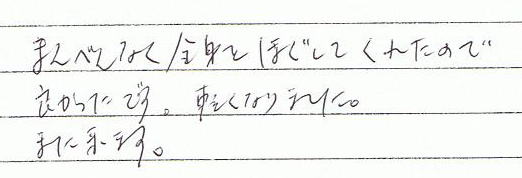 まんべんなく全身をほぐしてくれたので
良かったです。軽くなりました。
また来ます。